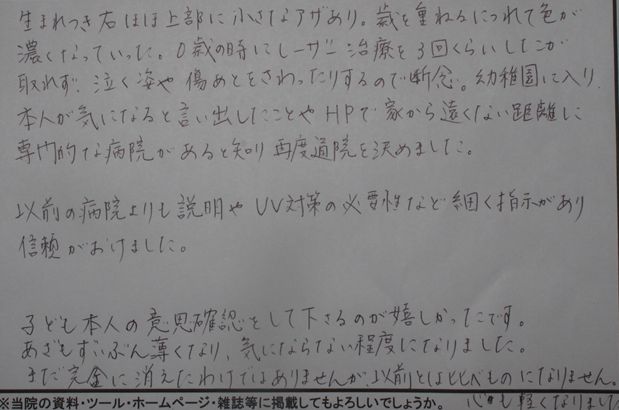 生まれつき右ほほ上部に小さなアザあり。歳を重ねるにつれて色が
濃くなっていった。0歳の時にレーザー治療を3回くらいしたが
取れず、泣く姿や傷あとをさわったりするので断念。幼稚園に入り、
本人が気になると言い出したことやHPで家から遠くない距離に
専門的な病院があると知り再度通院を決めました。
以前の病院よりも説明やUV対策の必要性など細く指示があり
信頼がおけました。
子ども本人の意思確認をして下さるのが嬉しかったです。
あざもずいぶん薄くなり、気にならない程度になりました。
まだ完全に消えたわけではありませんが、以前とはくらべものになりません。
心も軽くなりました
※当院の資料・ツール・ホームページ・雑誌等に掲載してもよろしいでしょうか。